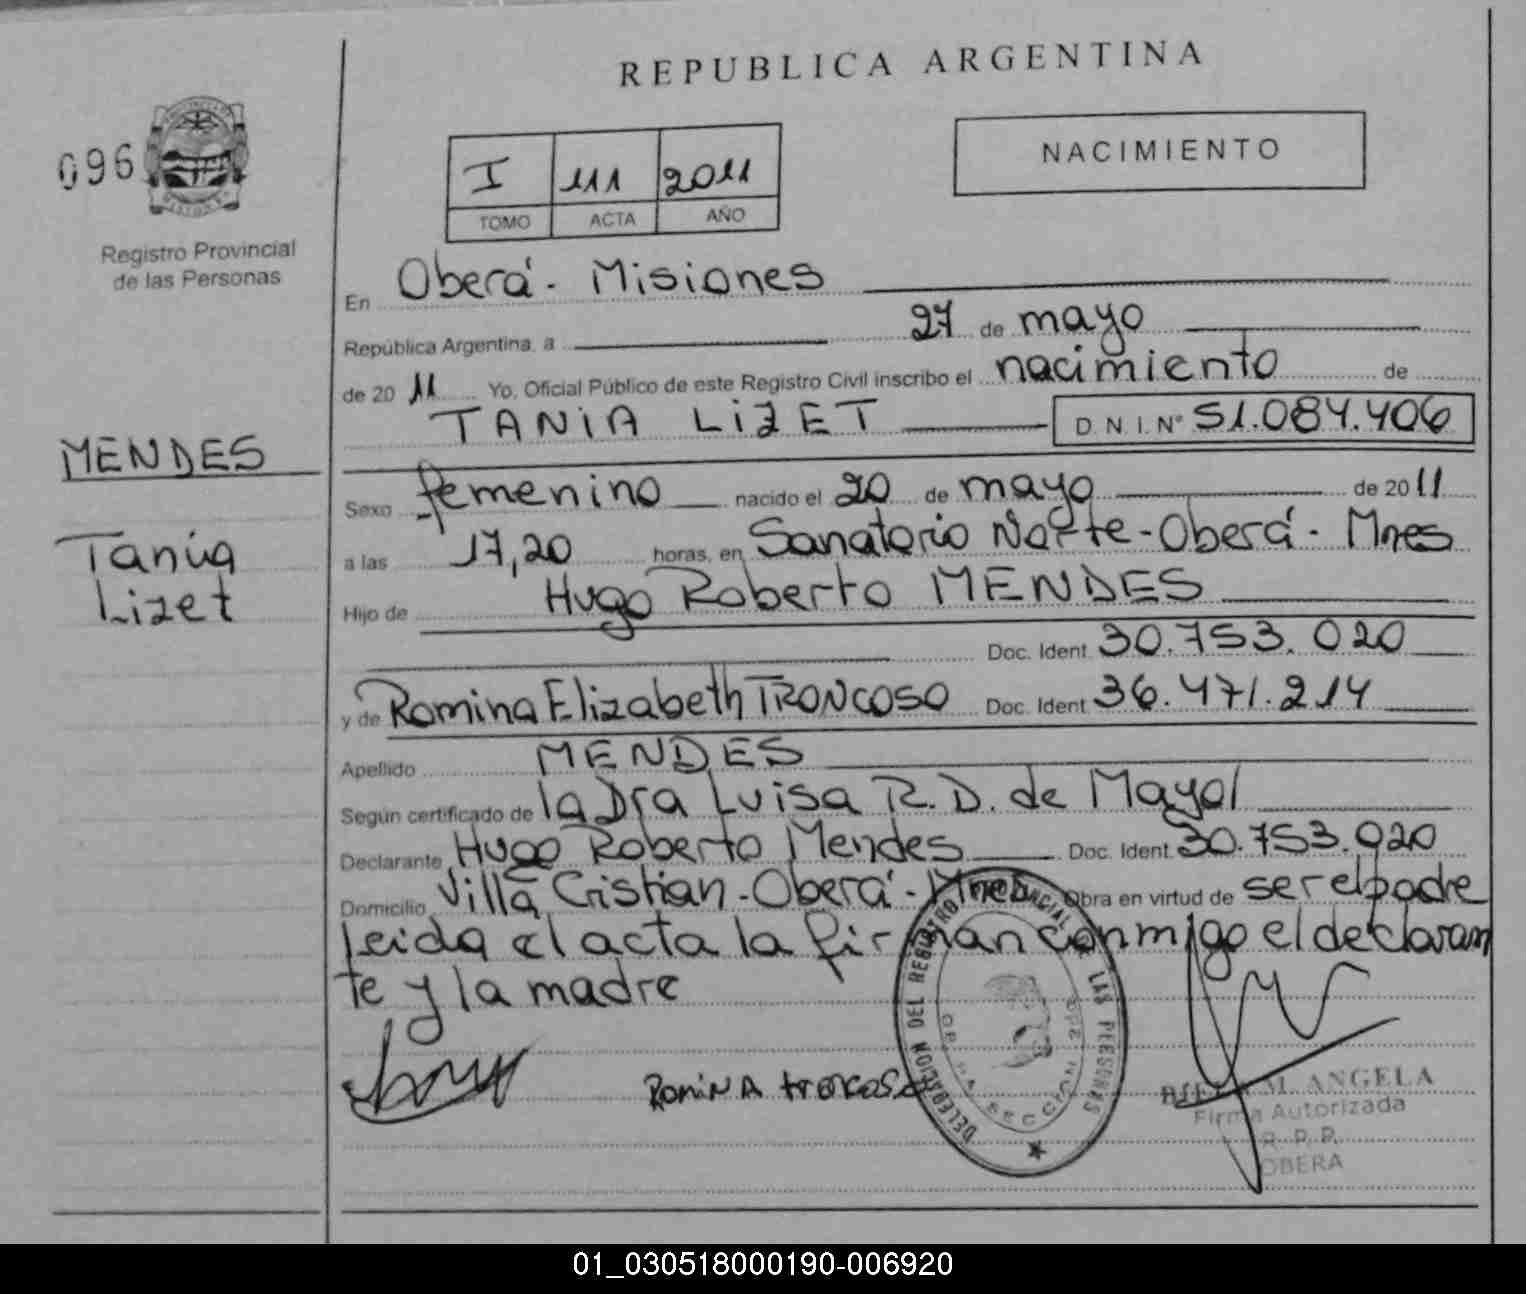 REPUBLICA ARGENTINA
096
Registro Provincial
de las Personas
I 111 2011
TOMO ACTA AÑO
NACIMIENTO
MENDES
Tania
Lizet
En Oberá - Misiones
República Argentina, a 27 de mayo
de 2011 Yo, Oficial Público de este Registro Civil inscribo el nacimiento de
TANIA LIZET D.N.I.Nº 51.084.406
Sexo femenino nacido el 20 de mayo de 2011
a las 17,20 horas, en Sanatorio Norte - Oberá - Mnes
Hijo de Hugo Roberto MENDES
Doc. Ident. 30.753.020
y de Romina Elizabeth TRONCOSO Doc. Ident. 36.471.214
Apellido MENDES
Según certificado de la Dra Luisa R. D. de Mayol
Declarante Hugo Roberto Mendes Doc. Ident. 30.753.020
Domicilio Villa Cristian - Oberá - Mnes Obra en virtud de ser el padre
leida el acta la firman conmigo el declaran
te y la madre
Romina troncoso
DELEGACION DEL REGISTRO PROVINCIAL DE LAS PERSONAS
M. ANGELA
Firma Autorizada
R. P. P.
OBERA
01_030518000190-006920